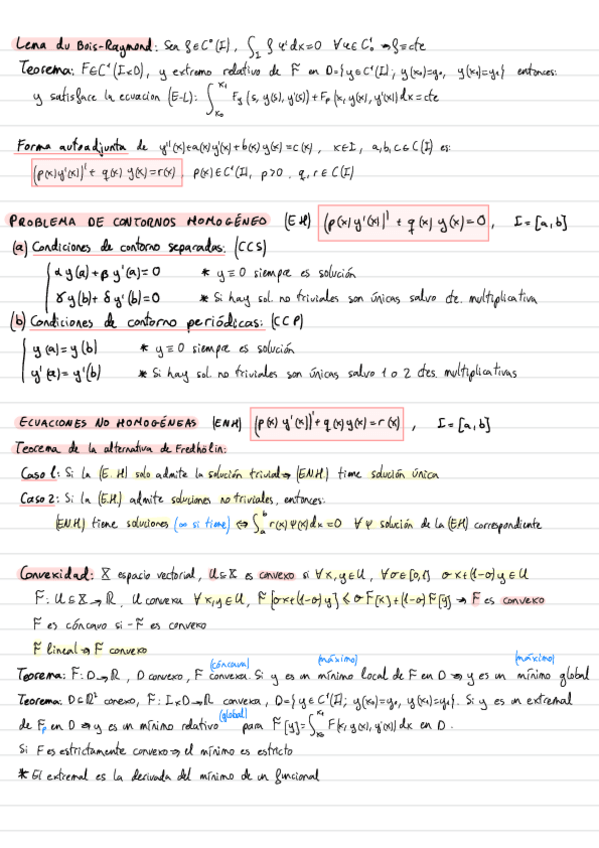 Lema du Bois-Raymond: Sea f∈C⁰(I), ∫_I f u'dx=0 ∀u∈C₀¹ ⇒ f=cte
Teorema: F∈C¹(I×D), y extremo relativo de F̃ en D={y∈C¹(I); y(x₀)=y₀, y(x₁)=y₁} entonces:
y satisface la ecuacion (E-L): ∫_{x₀}^{x₁} F_y(s, y(s), y'(s)) + F_p(x, y(x), y'(x)) dx = cte
Forma autoadjunta de y''(x)+a(x)y'(x)+b(x)y(x)=c(x), x∈I, a,b,c∈C(I) es:
(p(x)y'(x))' + q(x) y(x)=r(x), p(x)∈C¹(I), p>0, q,r∈C(I)
PROBLEMA DE CONTORNOS HOMOGÉNEO (EH) (p(x)y'(x))' + q(x) y(x)=0, I=[a,b]
(a) Condiciones de contorno separadas: (CCS)
α y(a)+β y'(a)=0 * y≡0 siempre es solución
γ y(b)+ δ y'(b)=0 * Si hay sol. no triviales son únicas salvo cte. multiplicativa
(b) Condiciones de contorno periódicas: (CCP)
y(a)=y(b) * y≡0 siempre es solución
y'(a)=y'(b) * Si hay sol. no triviales son únicas salvo 1 o 2 ctes. multiplicativas
ECUACIONES NO HOMOGÉNEAS (ENH) (p(x) y'(x))'+q(x)y(x)=r(x), I=[a,b]
Teorema de la alternativa de Fredholm:
Caso 1: Si la (E.H) solo admite la solución trivial ⇒ (E.N.H) tiene solución única
Caso 2: Si la (E.H.) admite soluciones no triviales, entonces:
(ENH) tiene soluciones (∞ si tiene) ⇔ ∫_a^b r(x)ψ(x)dx=0 ∀ψ solución de la (EH) correspondiente
Convexidad: X espacio vectorial, U⊆X es convexo si ∀x,y∈U, ∀σ∈[0,1] σx+(1-σ)y∈U
F̃: U⊆X→ℝ, U convexa ∀x,y∈U, F̃[σx+(1-σ)y]≤σF̃[x]+(1-σ)F̃[y] ⇒ F̃ es convexo
F̃ es cóncavo si -F̃ es convexo
F̃ lineal ⇒ F̃ convexo
(cóncava) (máximo) (máximo)
Teorema: F̃: D→ℝ, D convexo, F̃ convexa. Si y es un mínimo local de F̃ en D ⇒ y es un mínimo global
Teorema: D⊂ℝ² conexo, F̃: I×D→ℝ convexa, D={y∈C¹(I); y(x₀)=y₀, y(x₁)=y₁}. Si y es un extremal
de F_p en D ⇒ y es un mínimo relativo (global) para F̃[y]=∫_{x₀}^{x₁} F(x, y(x), y'(x)) dx en D.
Si F es estrictamente convexo ⇒ el mínimo es estricto
* El extremal es la derivada del mínimo de un funcional